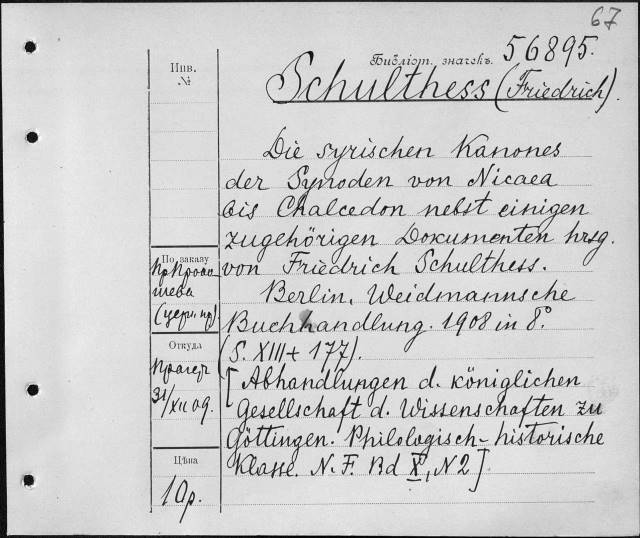 67
Библіот. значекъ. 56895.
Инв.
№
Schulthess (Friedrich).
Die syrischen Kanones
der Synoden von Nicaea
bis Chalcedon nebst einigen
zugehörigen Dokumenten hrsg.
von Friedrich Schulthess.
Berlin, Weidmannsche
Buchhandlung. 1908 in 8°.
(S. XIII + 177).
[Abhandlungen d. königlichen
Gesellschaft d. Wissenschaften zu
Göttingen. Philologisch-historische
Klasse. N. F. Bd X, N 2]
По заказу
Откуда
31/XII 09.
Цѣна
10р.